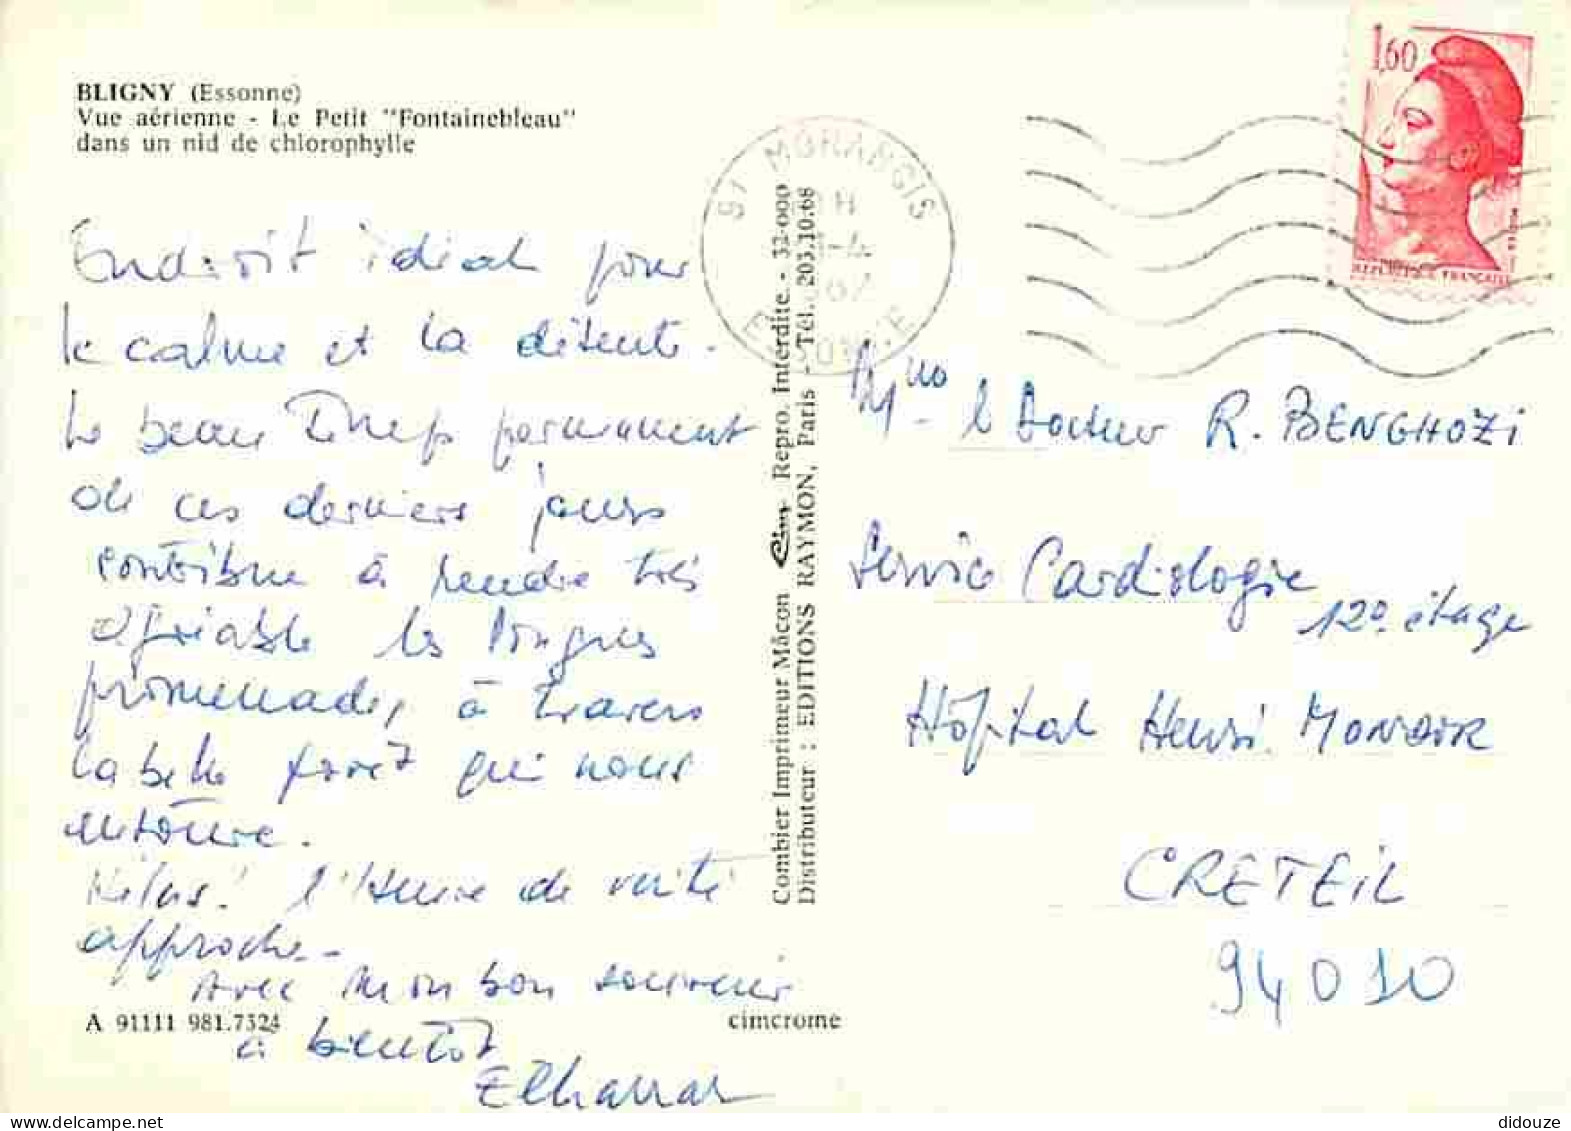 BLIGNY (Essonne)
Vue aérienne - Le Petit "Fontainebleau"
dans un nid de chlorophylle
Endroit idéal pour
le calme et la détente.
Le beau Temps permanent
de ces derniers jours
contribue à rendre très
agréable les longues
promenades, à travers
la belle forêt qui nous
entoure.
Hélas! l'Heure de vérité
approche.-
Avec mon bon souvenir
à bientôt
Elharrar
A 91111 981.7324
cimcrome
Combier Imprimeur Mâcon Cim Repro. Interdite. - 32-000
Distributeur : EDITIONS RAYMON, Paris - Tél. 203.10.68
91 MORANGIS
ESSONNE
1,60
REPUBLIQUE FRANÇAISE
le Docteur R. BENGHOZI
Service Cardiologie
12º étage
Hôpital Henri MONDOR
CRETEIL
94010
didouze